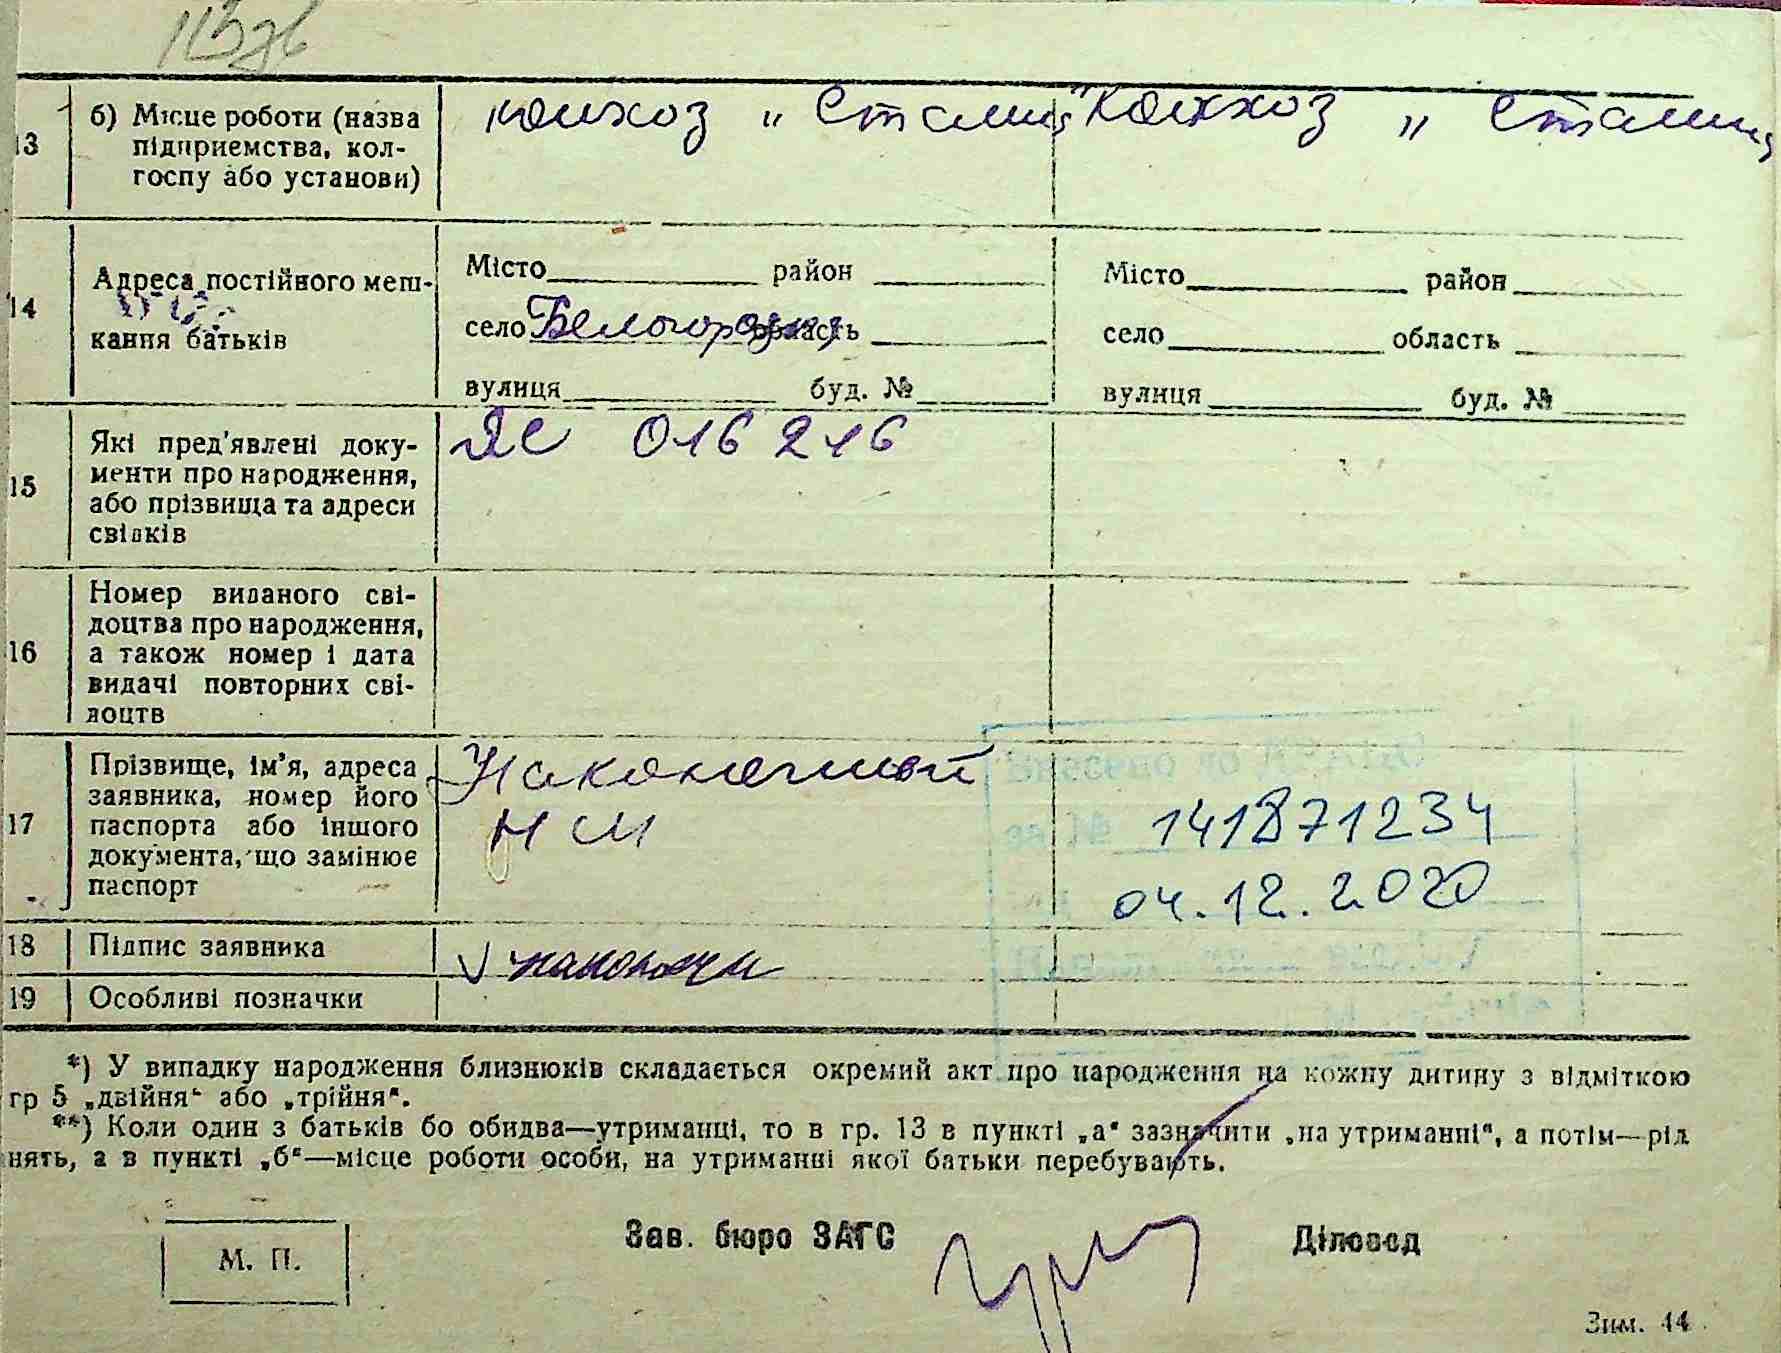 13 б) Місце роботи (назва підприємства, колгоспу або установи)
колхоз „ Сталин" Колхоз „ Сталин
14 Адреса постійного мешкання батьків
Місто район
село Белогородка область
вулиця буд. №
Місто район
село область
вулиця буд. №
15 Які пред'явлені документи про народження, або прізвища та адреси свідків
016216
16 Номер виданого свідоцтва про народження, а також номер і дата видачі повторних свідоцтв
17 Прізвище, ім'я, адреса заявника, номер його паспорта або іншого документа, що замінює паспорт
Наконечный
Н М
Внесено до
141871234
04.12.2020
18 Підпис заявника
19 Особливі позначки
*) У випадку народження близнюків складається окремий акт про народження на кожну дитину з відміткою
гр 5 „двійня“ або „трійня“.
**) Коли один з батьків бо обидва—утриманці, то в гр. 13 в пункті „а“ зазначити „на утриманні“, а потім—рід
нять, а в пункті „б“—місце роботи особи, на утриманні якої батьки перебувають.
М. П.
Зав. бюро ЗАГС
Діловод
Зим. 44